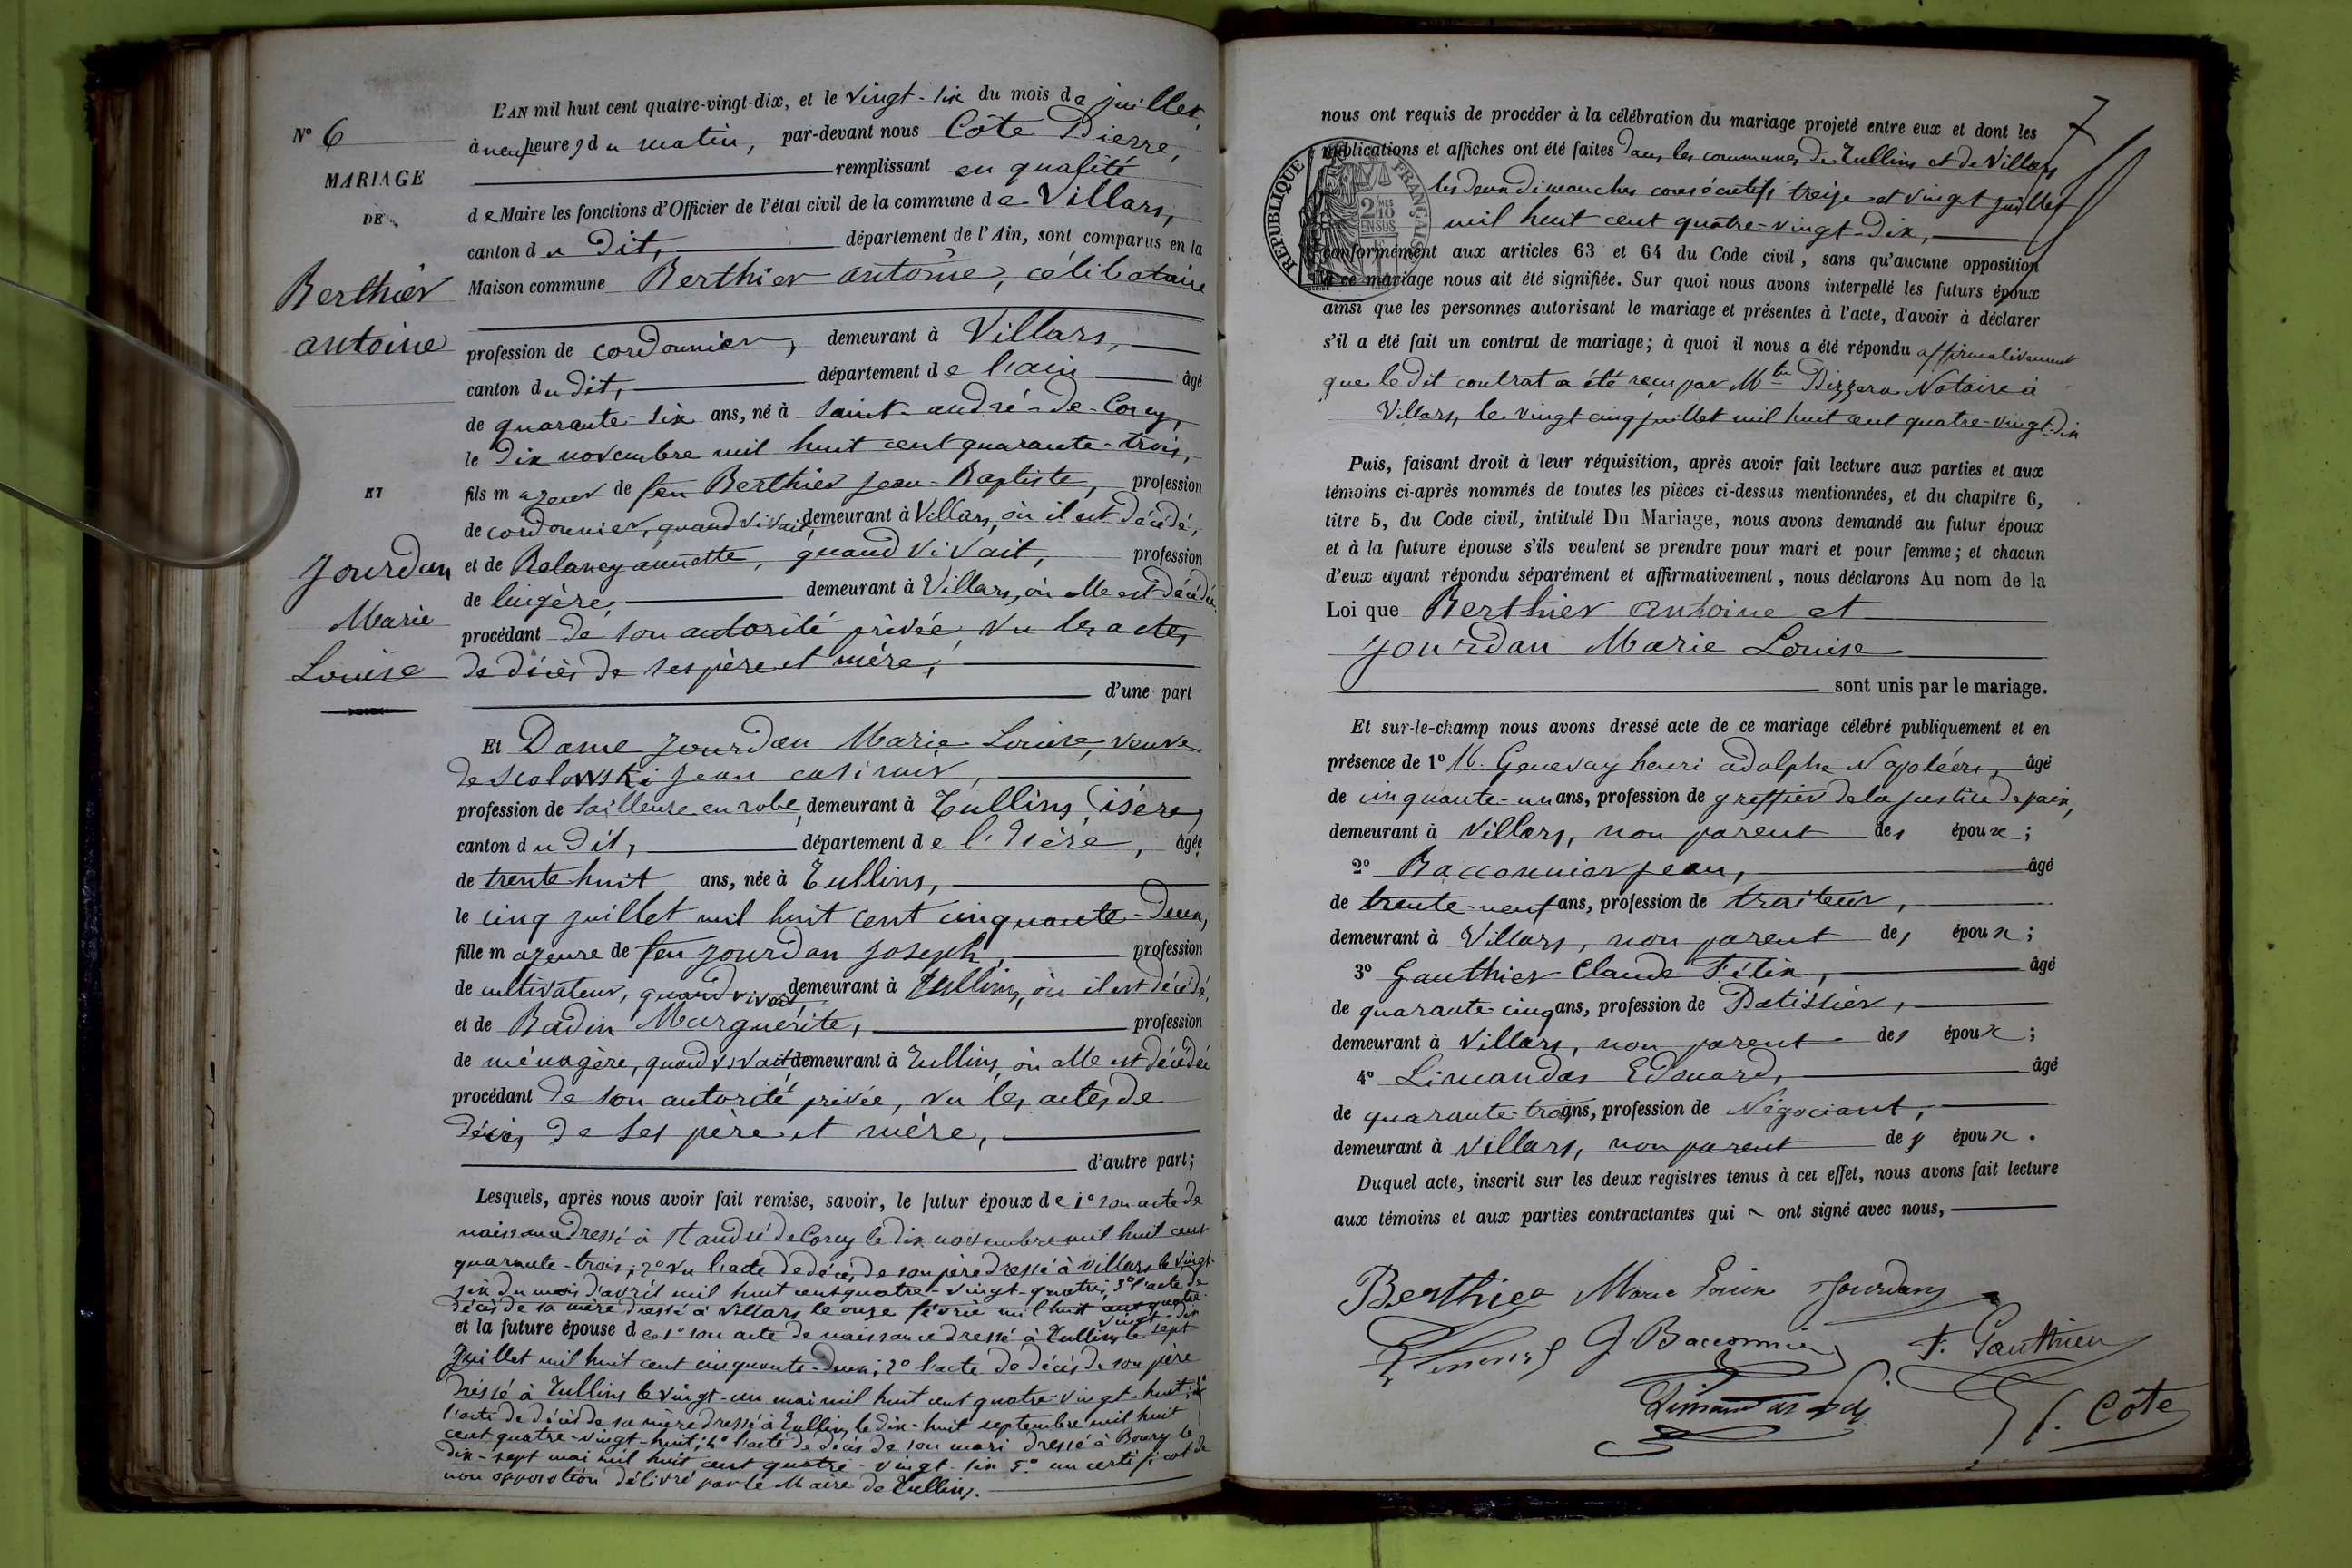 L'AN mil huit cent quatre-vingt-dix, et le vingt-six du mois de juillet,
N° 6
à neuf heures du matin, par-devant nous Côte Pierre,
remplissant en qualité
MARIAGE
DE
de Maire les fonctions d'Officier de l'état civil de la commune de Villars,
canton du Dit, département de l'Ain, sont comparus en la
Maison commune Berthier antoine, célibataire
Berthier
antoine
profession de cordonnier, demeurant à Villars,
canton du Dit, département de l'ain âgé
de quarante-six ans, né à Saint-andré-de-Corcy,
le dix novembre mil huit cent quarante-trois,
ET
fils majeur de feu Berthier Jean-Baptiste, profession
de cordonnier, quand vivait, demeurant à Villars, où il est décédé,
Jourdan
Marie
Louise
et de annette, quand vivait, profession
de lingère, demeurant à Villars, où elle est décédée
procédant de son autorité privée, vu les actes
de décès de ses père et mère,
d'une part
Et Dame Jourdan Marie Louise, veuve
de Scolowski Jean casimir,
profession de tailleuse en robe, demeurant à Tullins, (isère)
canton du Dit, département de l'Isère, âgée
de trente huit ans, née à Tullins,
le cinq juillet mil huit cent cinquante-deux,
fille majeure de feu Jourdan Joseph, profession
de cultivateur, quand vivait, demeurant à Tullins, où il est décédé,
et de Badin Marguerite, profession
de ménagère, quand vivait, demeurant à Tullins, où elle est décédée
procédant de son autorité privée, vu les actes de
décès de ses père et mère,
d'autre part;
Lesquels, après nous avoir fait remise, savoir, le futur époux de 1° son acte de
naissance dressé à St andré de Corcy le dix novembre mil huit cent
quarante-trois; 2° vu l'acte de décès de son père dressé à Villars le vingt-
six du mois d'avril mil huit cent quatre-vingt-quatre; 3° l'acte de
décès de sa mère dressé à Villars le onze février mil huit cent quatre-
vingt-dix
et la future épouse de 1° son acte de naissance dressé à Tullins le sept
Juillet mil huit cent cinquante-deux; 2° l'acte de décès de son père
dressé à Tullins le vingt-un mai mil huit cent quatre-vingt-huit; 3°
l'acte de décès de sa mère dressé à Tullins le dix-huit septembre mil huit
cent quatre-vingt-huit; 4° l'acte de décès de son mari dressé à Bourg le
dix-sept mai mil huit cent quatre-vingt-six 5° un certificat de
non opposition délivré par le Maire de Tullins.
7
nous ont requis de procéder à la célébration du mariage projeté entre eux et dont les
publications et affiches ont été faites dans les communes de Tullins et de Villars
les deux dimanches consécutifs treize et vingt juillet
mil huit cent quatre-vingt-dix,
RÉPUBLIQUE FRANÇAISE
2 MES 10 EN SUS
conformément aux articles 63 et 64 du Code civil, sans qu'aucune opposition
à ce mariage nous ait été signifiée. Sur quoi nous avons interpellé les futurs époux
ainsi que les personnes autorisant le mariage et présentes à l'acte, d'avoir à déclarer
s'il a été fait un contrat de mariage; à quoi il nous a été répondu affirmativement
que le dit contrat a été reçu par Mtre Notaire à
Villars, le vingt cinq juillet mil huit cent quatre-vingt-dix
Puis, faisant droit à leur réquisition, après avoir fait lecture aux parties et aux
témoins ci-après nommés de toutes les pièces ci-dessus mentionnées, et du chapitre 6,
titre 5, du Code civil, intitulé Du Mariage, nous avons demandé au futur époux
et à la future épouse s'ils veulent se prendre pour mari et pour femme; et chacun
d'eux ayant répondu séparément et affirmativement, nous déclarons Au nom de la
Loi que Berthier antoine et
Jourdan Marie Louise
sont unis par le mariage.
Et sur-le-champ nous avons dressé acte de ce mariage célébré publiquement et en
présence de 1° M. Genevay henri adolphe Napoléon, âgé
de cinquante-un ans, profession de greffier de la justice de paix,
demeurant à Villars, non parent des époux;
2° Bacconnier Jean, âgé
de trente-neuf ans, profession de traiteur,
demeurant à Villars, non parent des époux;
3° Gauthier Claude Félix, âgé
de quarante-cinq ans, profession de Patissier,
demeurant à Villars, non parent des époux;
4° Limandas Edouard, âgé
de quarante-trois ans, profession de Négociant,
demeurant à Villars, non parent des époux.
Duquel acte, inscrit sur les deux registres tenus à cet effet, nous avons fait lecture
aux témoins et aux parties contractantes qui ont signé avec nous,
Berthier Marie Louise Jourdan
J. Bacconnier F. Gauthier
Limandas
P. Côte